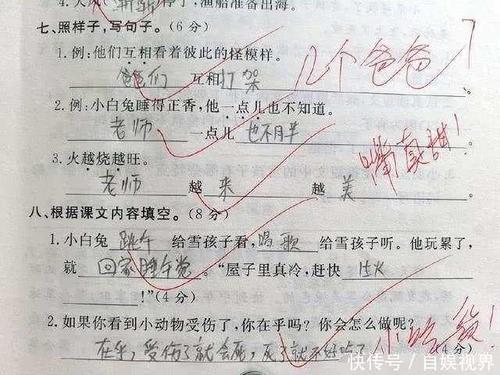 渐渐停了,渔船准备出海。
七、照样子,写句子。(6分)
1.例:他们互相看着彼此的怪模样。
爸爸们 互相打架 。 几个爸爸?
2.例:小白兔睡得正香,他一点儿也不知道。
老师 一点儿 也不胖 。
3.火越烧越旺。 嘴真甜!
老师 越 来 越 美 。
八、根据课文内容填空。(8分)
1.小白兔 跳午 给雪孩子看,唱歌 给雪孩子听。他玩累了,
就 回家睡午觉 。“屋子里真冷,赶快
!”(4分)
2.如果你看到小动物受伤了,你在乎吗?你会怎么做呢?
在乎,受伤了就会死,死了就不好吃了 (4分) 小吃货!
快传号/自娱视界